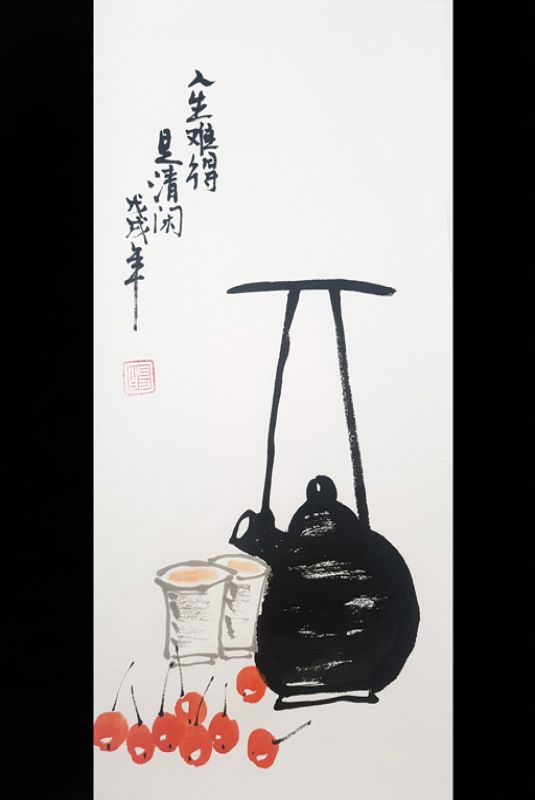 人生难得
是清闲
戊戌年